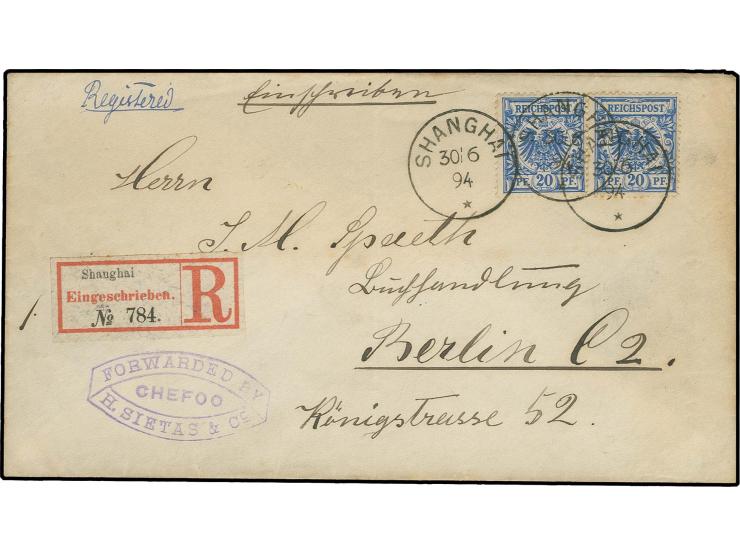 Registered Einschreiben
REICHSPOST REICHSPOST
20 PF. 20 PF.
SHANGHAI
30/6
94
*
30/6
94
*
Herrn
J. M. Spaeth
Buchhandlung
Berlin C2.
Königstrasse 52.
Shanghai
Eingeschrieben.
№ 784.
R
1.
FORWARDED BY
CHEFOO
H. SIETAS & Co.